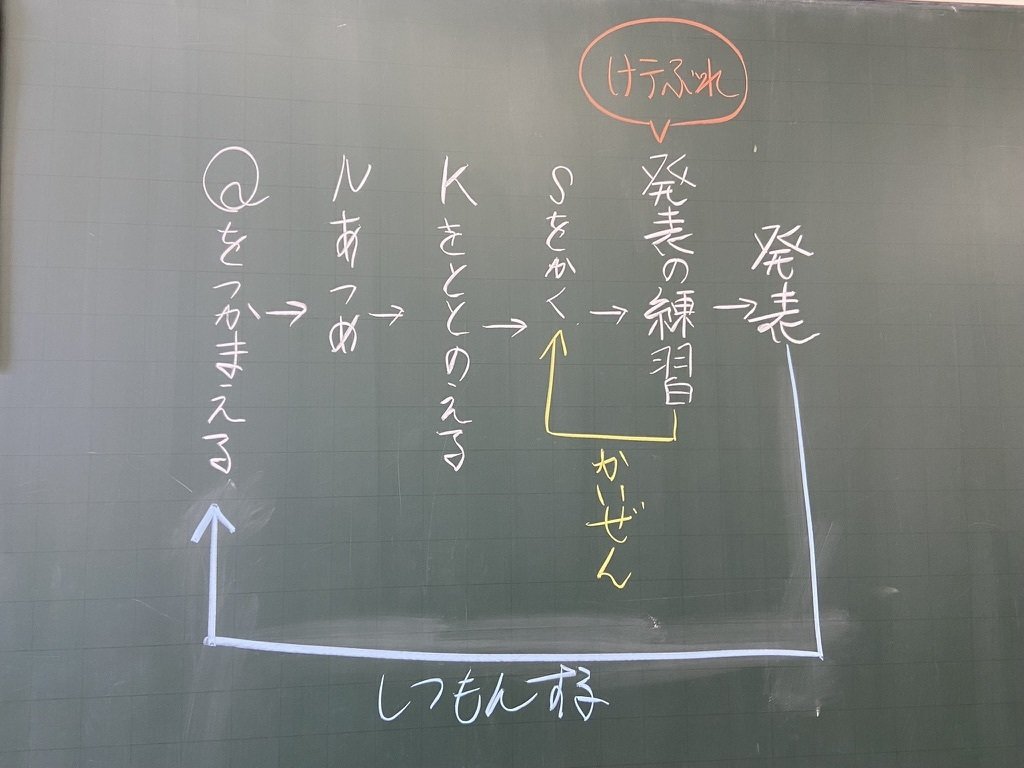 けテぶれ
Qをつかまえる
→
Nあつめ
→
Kをととのえる
→
Sをかく
→
発表の練習
→
発表
かいぜん
しつもんする